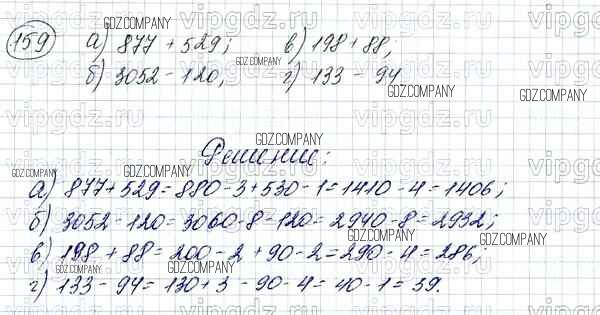 159) а) 877 + 529; в) 198 + 88;
б) 3052 - 120, г) 133 - 94
Решение:
а) 877 + 529 = 880 - 3 + 530 - 1 = 1410 - 4 = 1406;
б) 3052 - 120 = 3060 - 8 - 120 = 2940 - 8 = 2932;
в) 198 + 88 = 200 - 2 + 90 - 2 = 290 - 4 = 286;
г) 133 - 94 = 130 + 3 - 90 - 4 = 40 - 1 = 39.
GDZ.COMPANY
vipgdz.ru